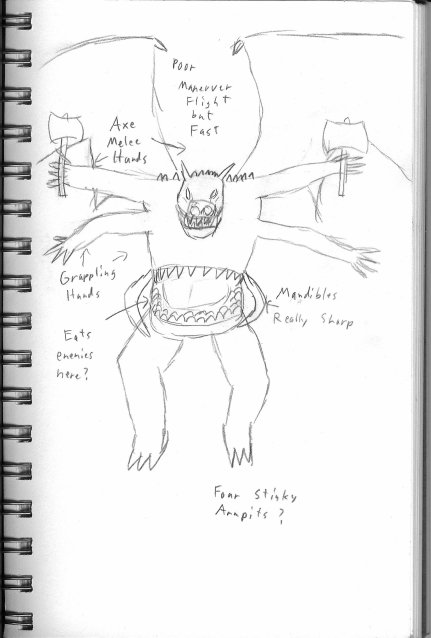 Poor
Maneuver
Flight
but
Fast
Axe
Melee
Hands
Grappling
Hands
Mandibles
Really Sharp
Eats
enemies
here?
Four Stinky
Armpits?